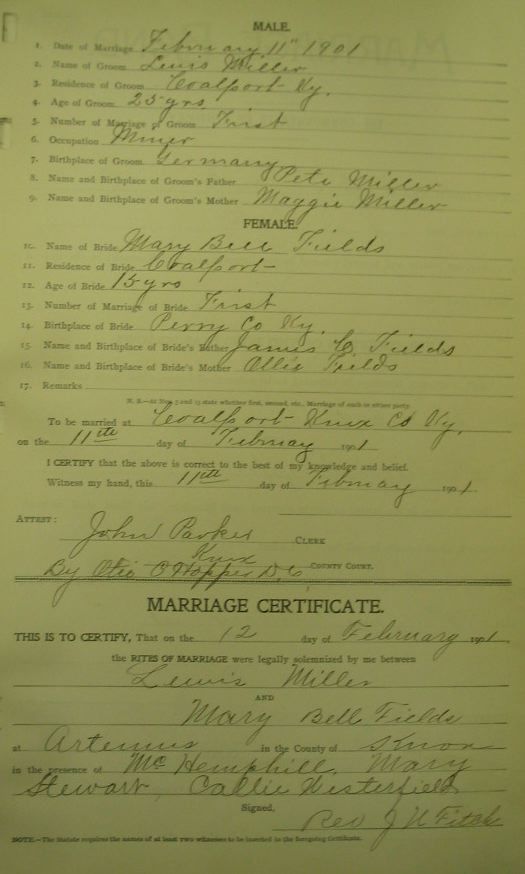 MALE.
1. Date of Marriage February 11" 1901
2. Name of Groom Lewis Miller
3. Residence of Groom Coalport Ky.
4. Age of Groom 25 yrs
5. Number of Marriage of Groom First
6. Occupation Miner
7. Birthplace of Groom Germany
8. Name and Birthplace of Groom's Father Pete Miller
9. Name and Birthplace of Groom's Mother Maggie Miller
FEMALE.
10. Name of Bride Mary Bell Fields
11. Residence of Bride Coalport
12. Age of Bride 15 yrs
13. Number of Marriage of Bride First
14. Birthplace of Bride Perry Co Ky.
15. Name and Birthplace of Bride's Father James C. Fields
16. Name and Birthplace of Bride's Mother Ollie Fields
17. Remarks
N. B.—At Nos. 5 and 13 state whether first, second, etc., Marriage of each or either party.
To be married at Coalport Knox Co Ky,
on the 11th day of February 1901.
I CERTIFY that the above is correct to the best of my knowledge and belief.
Witness my hand, this 11th day of February 1901.
ATTEST:
John Parker CLERK
Knox
By Otis C Hopper D,C COUNTY COURT.
MARRIAGE CERTIFICATE.
THIS IS TO CERTIFY, That on the 12 day of February 1901.
the RITES OF MARRIAGE were legally solemnized by me between
Lewis Miller
AND
Mary Bell Fields
at Artemus in the County of Knox
in the presence of Mc Hemphill, Mary
Stewart, Callie Westerfield
Signed,
Rev J N Fitch
NOTE.—The Statute requires the names of at least two witnesses to be inserted in the foregoing Certificate.